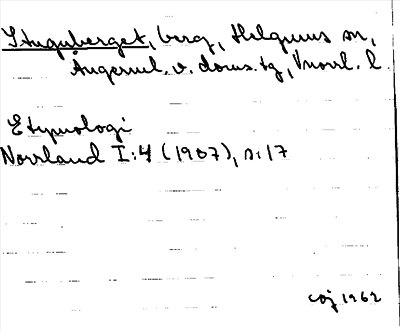 Stuguberget, berg, Helgums sn,
Ångerml. v. doms. tg, Vnorrl. l.
Etymologi
Norrland I:4 (1907), s. 17
1962